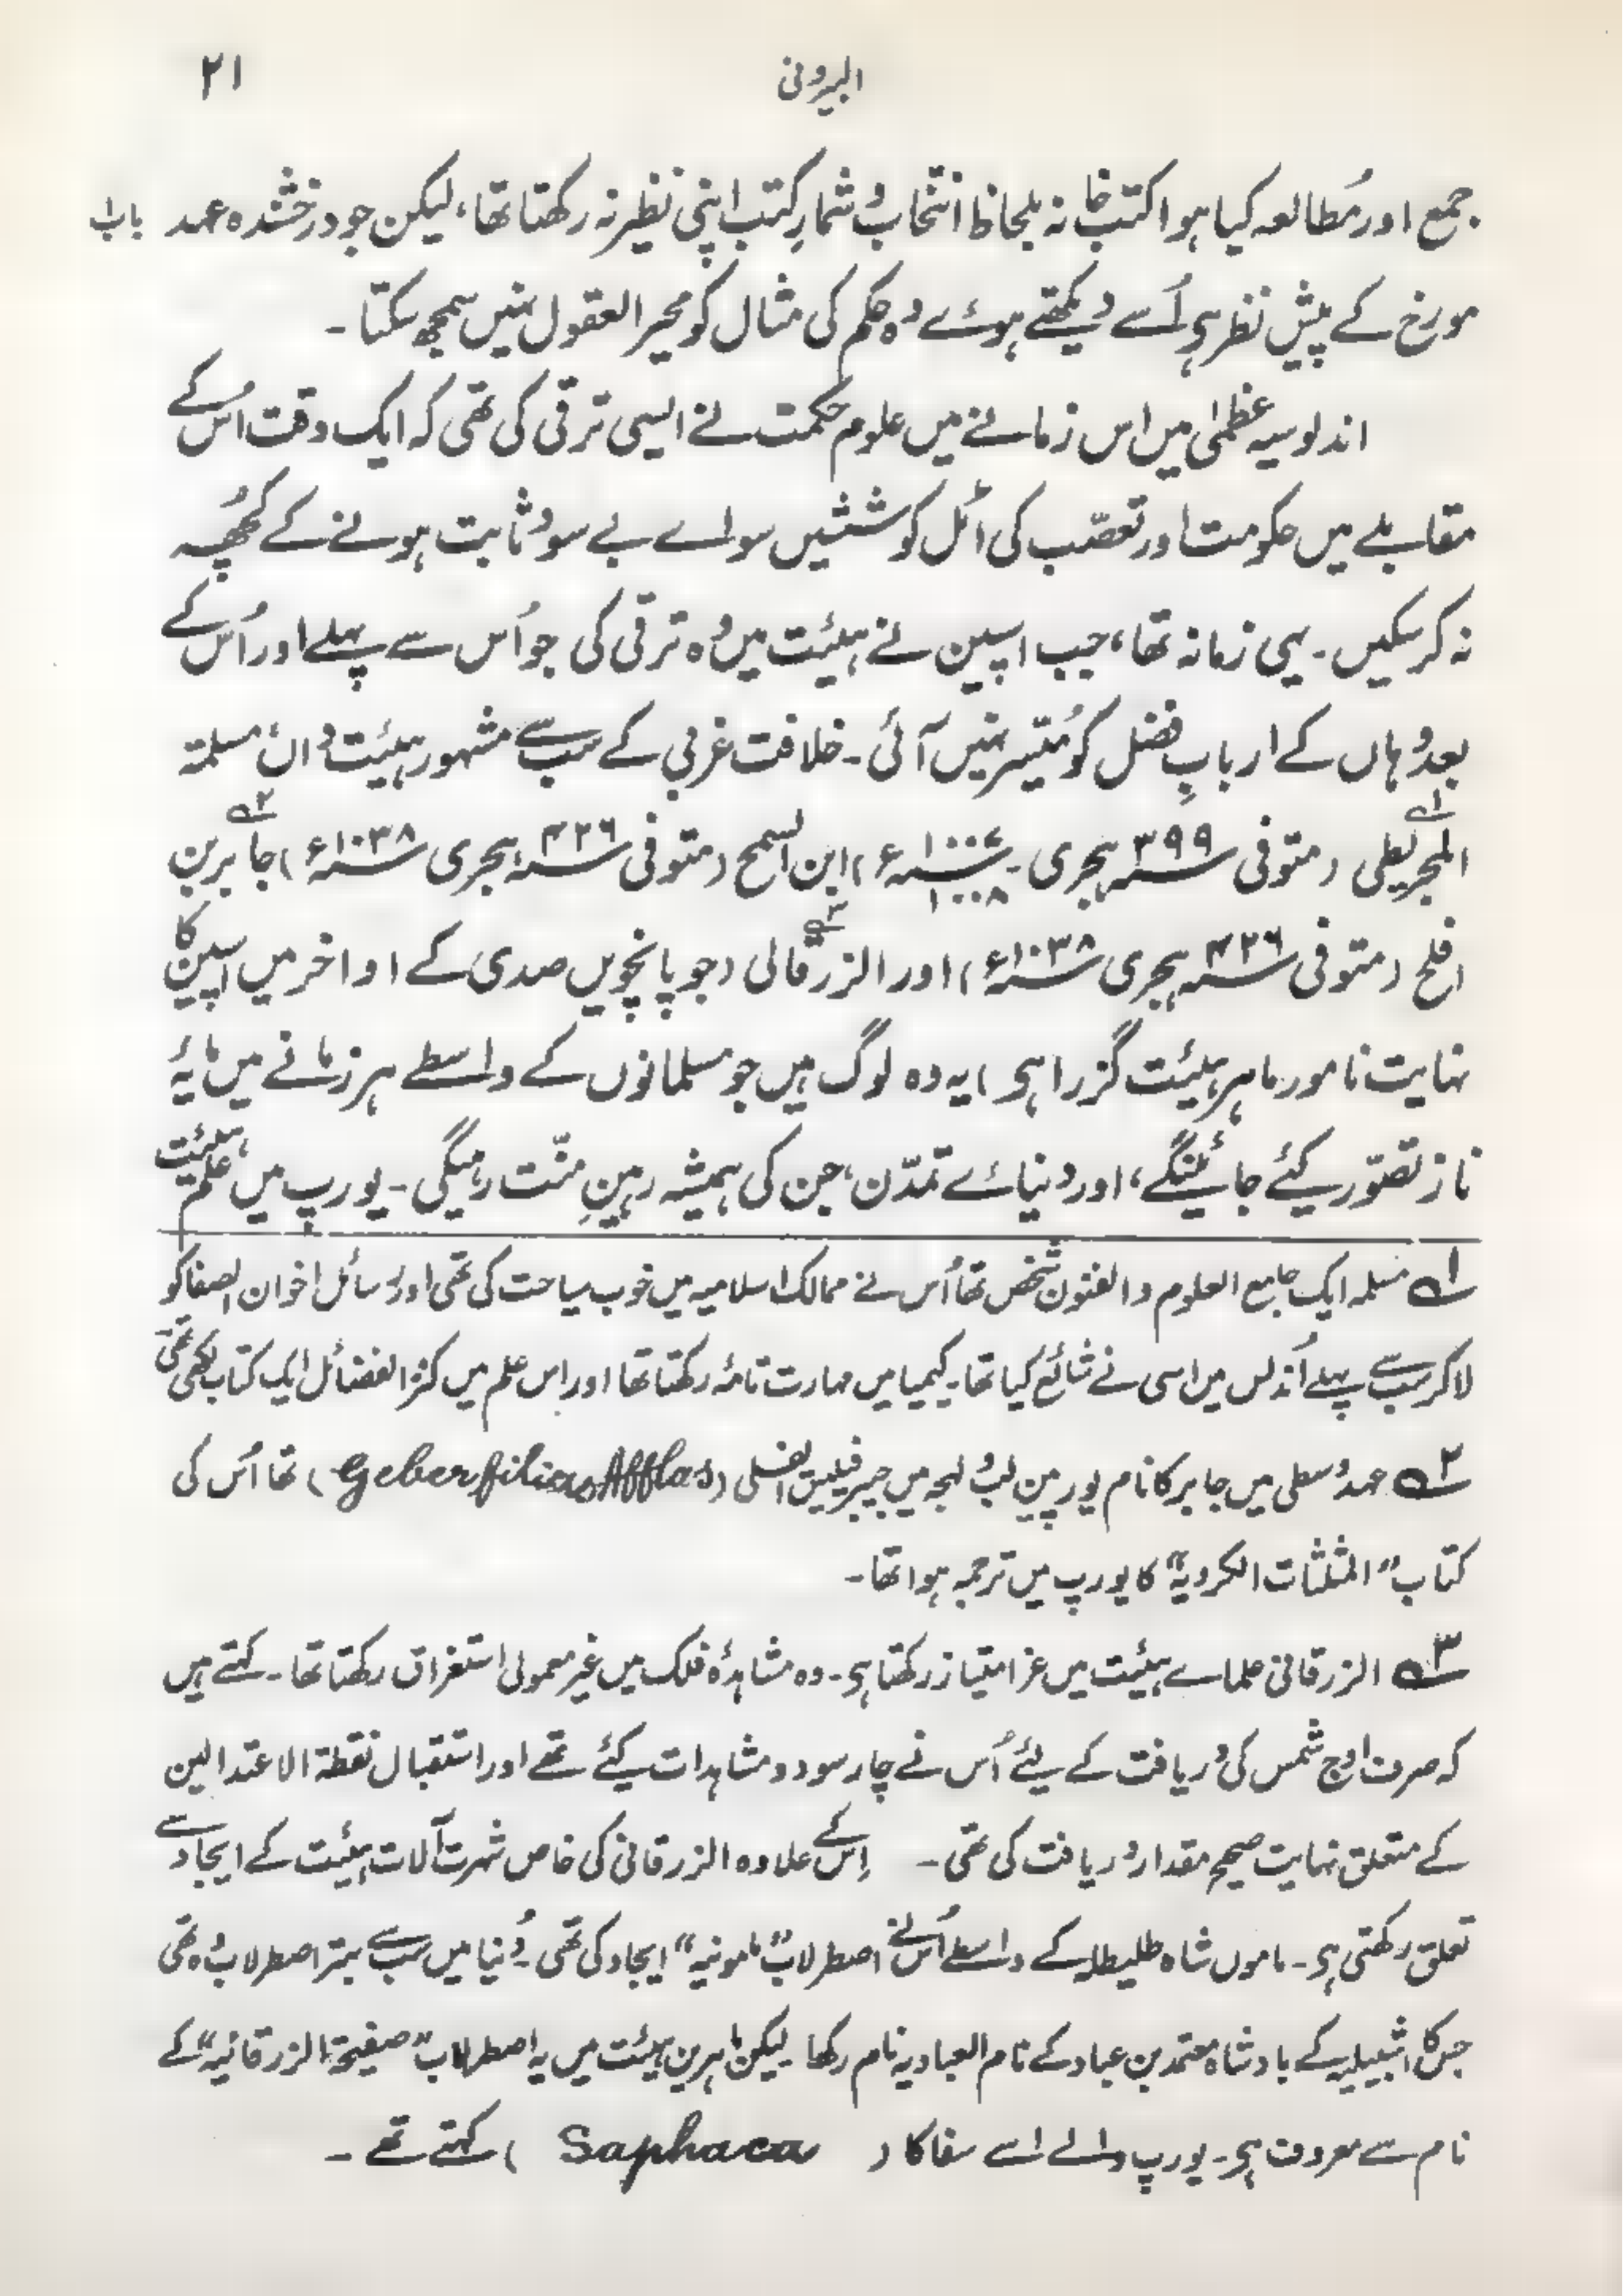 البیرونی ۲۱
جمع اور مُطالعہ کیا ہوا کتب خانہ بلحاظ انتخاب و شمارِ کتب اپنی نظیر نہ رکھتا تھا، لیکن جو درخشندہ عہد باب۱
مورخ کے پیش نظر ہی اُسے دیکھتے ہوے وہ حکم کی مثال کو محیر العقول نہیں سمجھ سکتا -
اندلوسیہ عظمیٰ میں اس زمانے میں علوم حکمت نے ایسی ترقی کی تھی کہ ایک وقت اُس کے
مقابلے میں حکومت اور تعصّب کی اٹل کوششیں سواے بے سود ثابت ہونے کے کُچھ
نہ کر سکیں - یہی زمانہ تھا، جب اسپین نے ہیئت میں وُہ ترقی کی جو اُس سے پہلے اور اُس کے
بعد وُہاں کے اربابِ فضل کو مُیّسر نہیں آئی - خلافت غربی کے سب سے مشہور ہیئت دان مسلمۃ
المجریطی ۱؎ (متوفی ۳۹۹ ہجری - ۱۰۰۷ ۱۰۰۸ ء) ابن السمح (متوفی ۴۲۶ ہجری ۱۰۳۸ء) جابر بن ۲؎
افلح (متوفی ۴۲۶ ہجری ۱۰۳۸ء) اور الزرقالی ۳؎ (جو پانچویں صدی کے اواخر میں اسپین کا
نہایت نامور ماہر ہیئت گزرا ہی) یہ وہ لوگ ہیں جو مسلمانوں کے واسطے ہر زمانے میں مایۂ
ناز تصّور کیئے جائینگے، اور دنیاے تمدّن، جن کی ہمیشہ رہینِ منّت رہیگی - یورپ میں علم ہیئت
۱؎ مسلمہ ایک جامع العلوم والفنون شخص تھا اُس نے ممالک اسلامیہ میں خوب سیاحت کی تھی اور رسائل اخوان الصفا کو
لا کر سب سے پہلے اُندلس میں اسی نے شائع کیا تھا - کیمیا میں مہارت تامہ رکھتا تھا اور اس علم میں کنز الفضائل ایک کتاب لکھی تھی
۲؎ عہد وُسطی میں جابر کا نام یورپین لب و لہجہ میں جیبر فیلیس افلی (Geber filius Afflas) تھا اُس کی
کتاب "المثلثات الکرویہ" کا یورپ میں ترجمہ ہوا تھا -
۳؎ الزرقانی علماے ہیئت میں عز امتیاز رکھتا ہی - وہ مشاہدۂ فلک میں غیر معمولی استغراق رکھتا تھا - کہتے ہیں
کہ صرف اوج شمس کی دریافت کے لیئے اُس نے چار سو دو مشاہدات کیئے تھے اور استقبال نقطۃ الاعتدالین
کے متعلق نہایت صحیح مقدار دریافت کی تھی - اِس کے علاوہ الزرقانی کی خاص شہرت آلات ہیئت کے ایجاد سے
تعلق رکھتی ہی - ماموں شاہ طلیطلہ کے واسطے اُس نے اصطرلاب "مامونیہ" ایجاد کی تھی - دُنیا میں سب سے بہتر اصطرلاب وُہ تھی
جس کا اشبیلیہ کے بادشاہ معتمد بن عباد کے نام العبادیہ نام رکھا لیکن ماہرین ہیئت میں یہ اصطرلاب "صفیحۃ الزرقانیہ" کے
نام سے معروف ہی - یورپ والے اسے سفاکا ( Saphaca ) کہتے تھے -